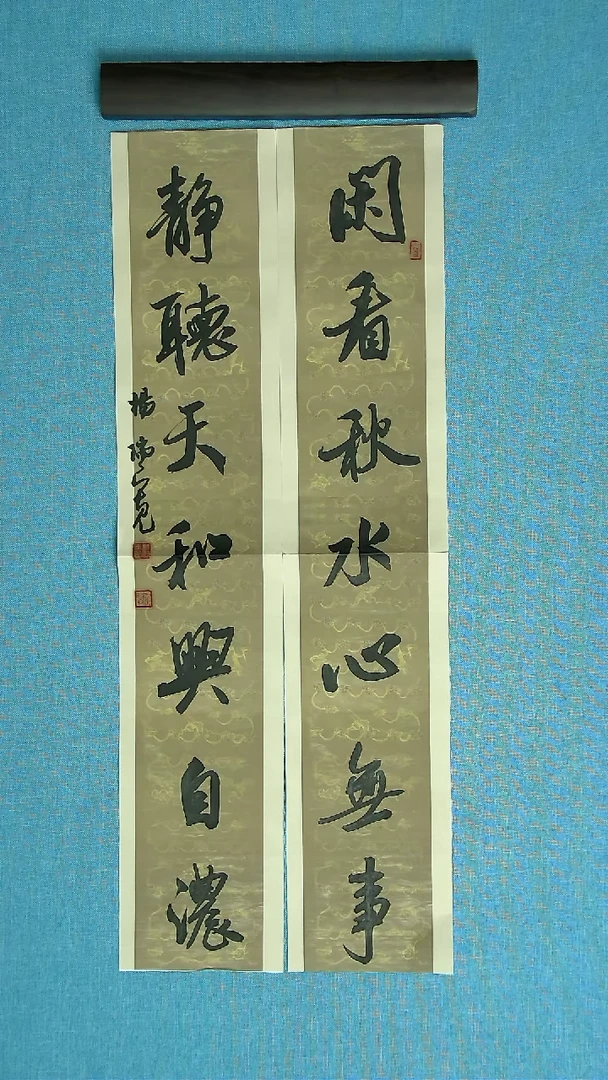 閑看秋水心無事
静聽天和興自濃
楊瑞寛